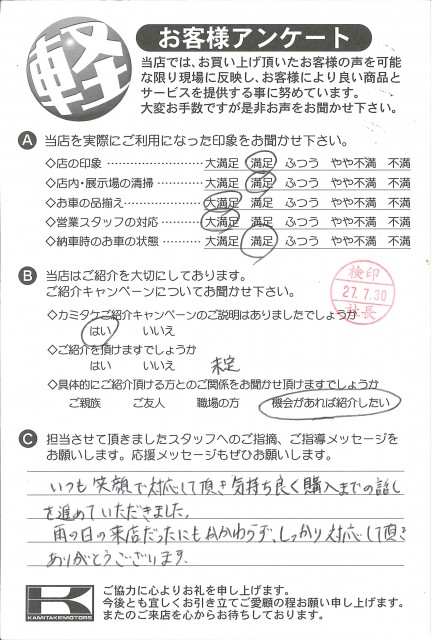 軽
お客様アンケート
当店では、お買い上げ頂いたお客様の声を可能
な限り現場に反映し、お客様により良い商品と
サービスを提供する事に努めています。
大変お手数ですが是非お声をお聞かせ下さい。
A 当店を実際にご利用になった印象をお聞かせ下さい。
◇店の印象 ………………… 大満足 満足 ふつう やや不満 不満
◇店内・展示場の清掃 ……… 大満足 満足 ふつう やや不満 不満
◇お車の品揃え …………… 大満足 満足 ふつう やや不満 不満
◇営業スタッフの対応 ……… 大満足 満足 ふつう やや不満 不満
◇納車時のお車の状態 ……… 大満足 満足 ふつう やや不満 不満
B 当店はご紹介を大切にしております。
ご紹介キャンペーンについてお聞かせ下さい。
検印
27.7.30
社長
◇カミタケご紹介キャンペーンのご説明はありましたでしょうか
はい いいえ
◇ご紹介を頂けますでしょうか
はい いいえ 未定
◇具体的にご紹介頂ける方とのご関係をお聞かせ頂けますでしょうか
ご親族 ご友人 職場の方 機会があれば紹介したい
C 担当させて頂きましたスタッフへのご指摘、ご指導メッセージを
お願いします。応援メッセージもぜひお願いします。
いつも笑顔で対応して頂き気持ち良く購入までの話し
を進めていただきました。
雨の日の来店だったにもかかわらず、しっかり対応して頂き
ありがとうございます。
K
KAMITAKEMOTORS
ご協力に心よりお礼を申し上げます。
今後とも宜しくお引き立てご愛顧の程お願い申し上げます。
またのご来店を心からお待ちしております。